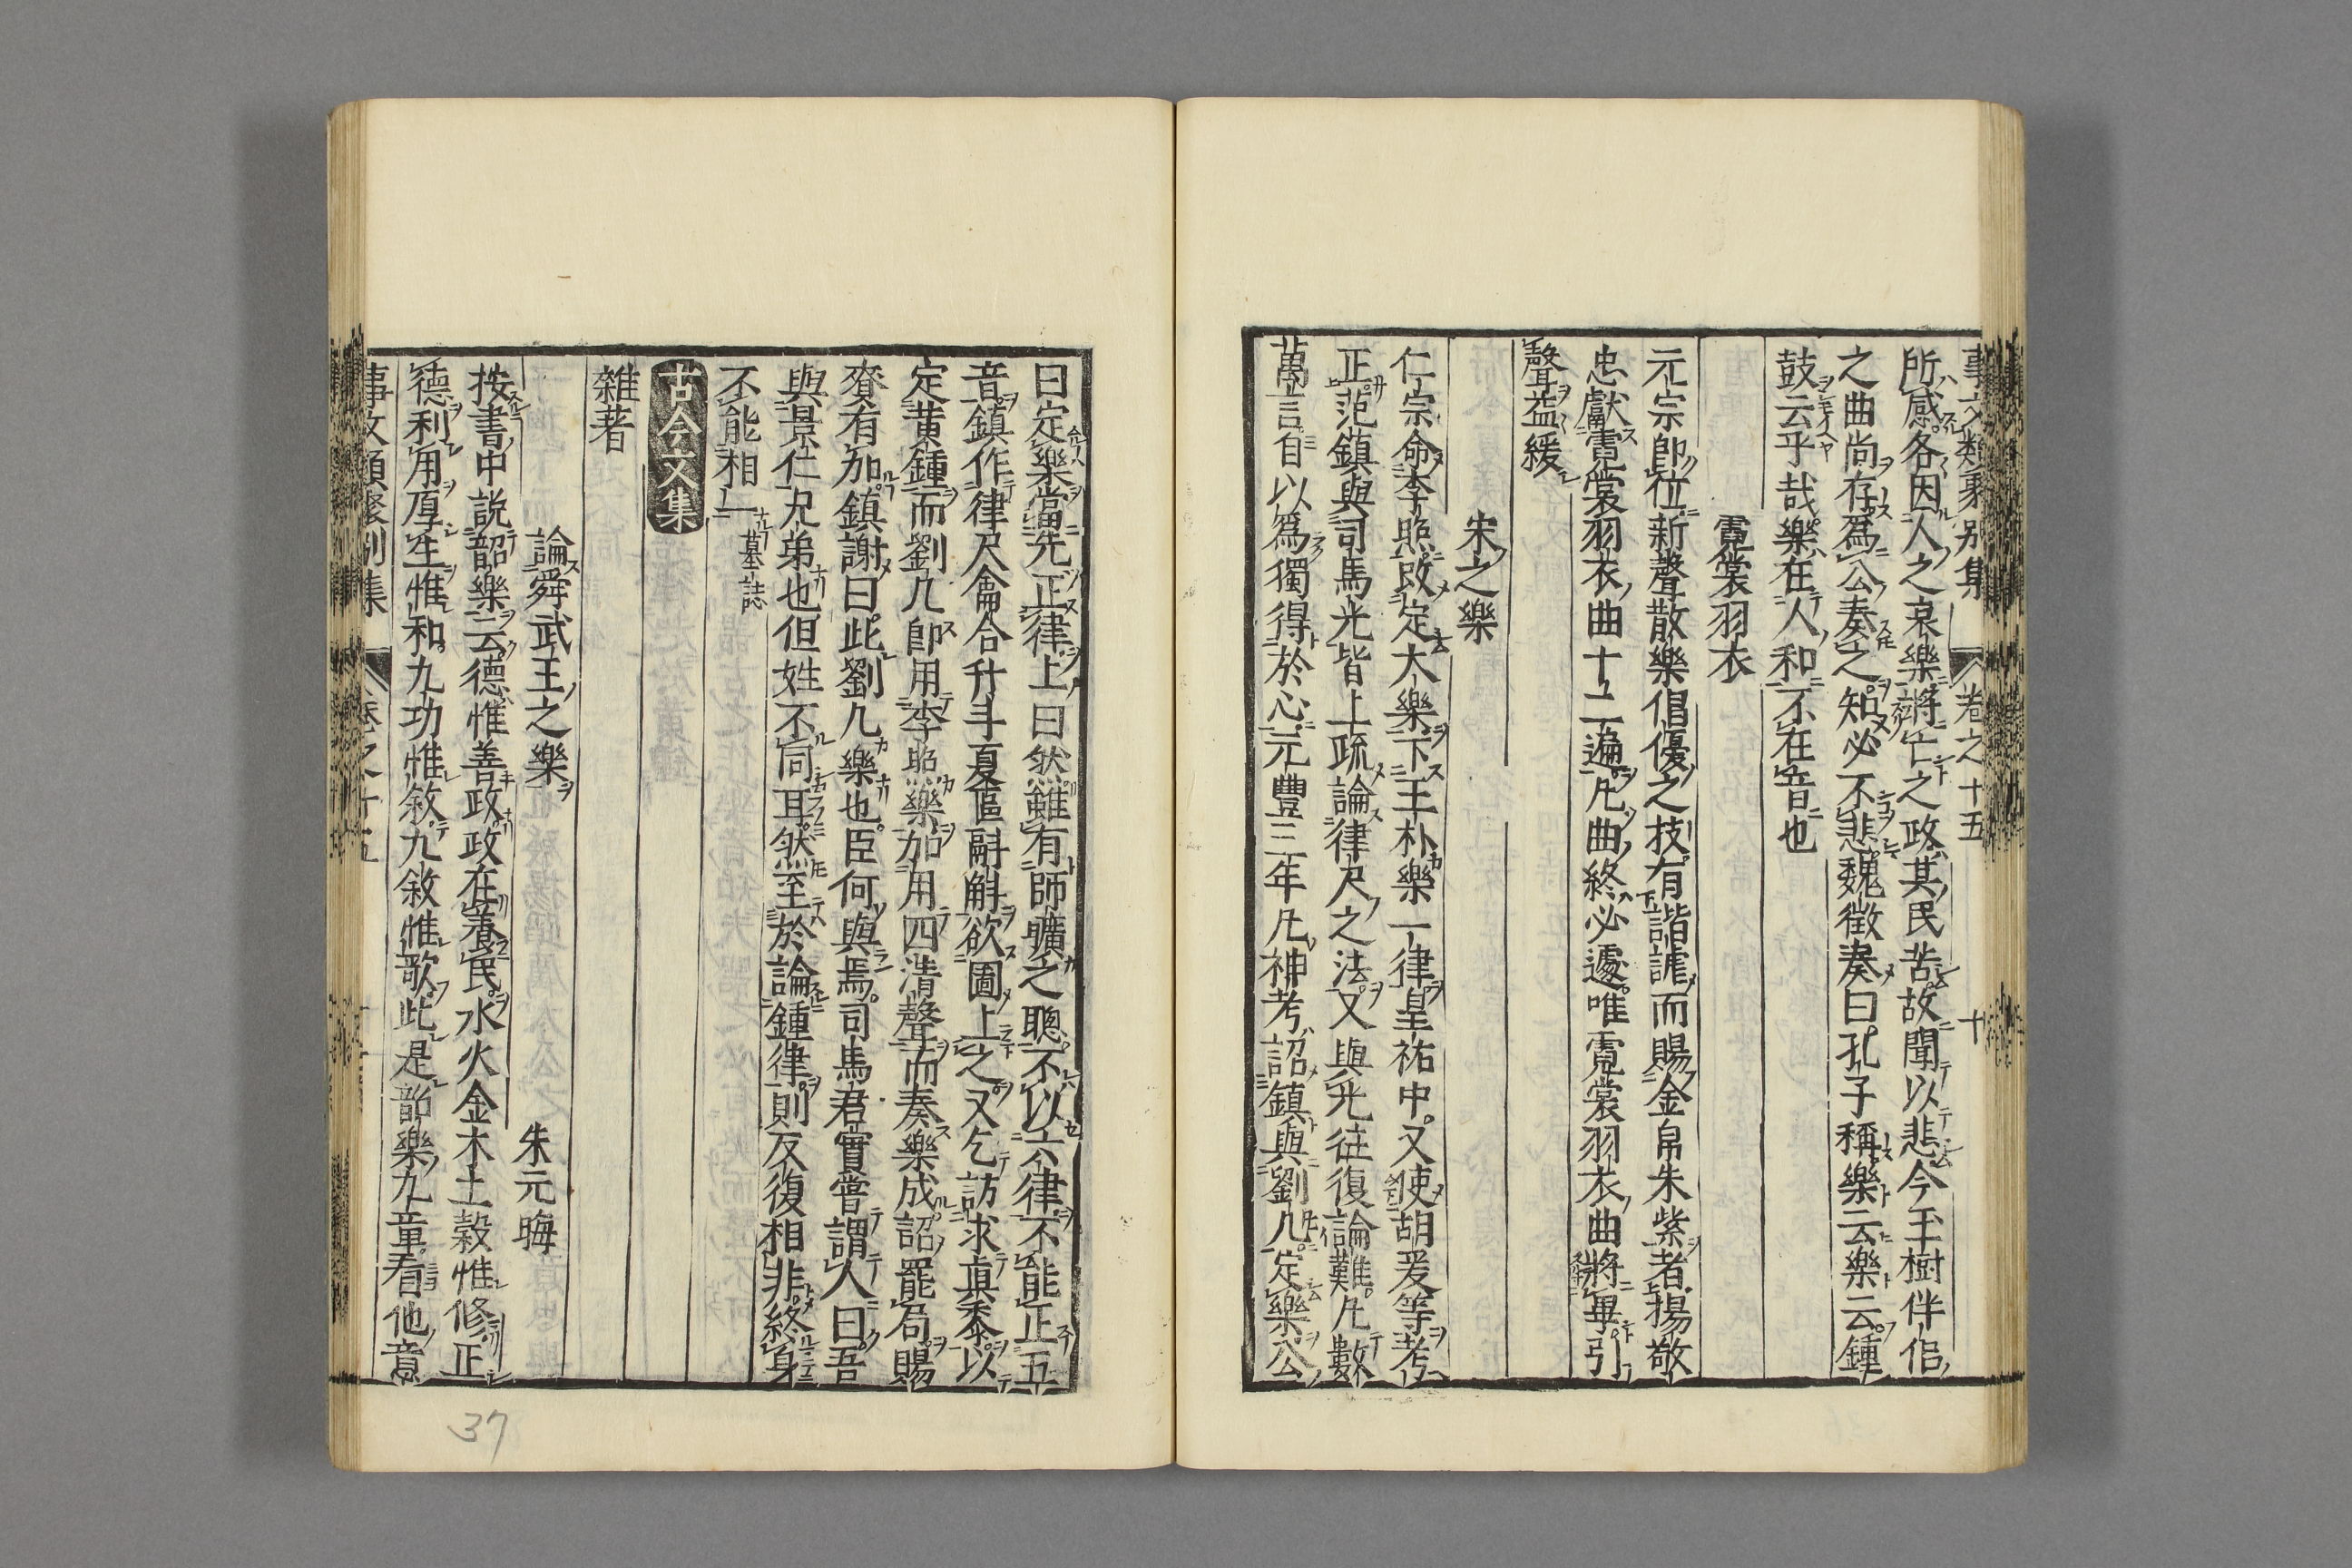 事文類聚別集 卷之十五 十
所感各因人之哀樂將亡之政其民苦故聞以悲今玉樹伴侶
之曲尚存爲公奏之知必不悲魏徵奏曰孔子稱樂云樂云鍾
鼓云乎哉樂在人和不在音也
霓裳羽衣
元宗卽位新聲散樂倡優之技有諧謔而賜金帛朱紫者揚敬
忠獻霓裳羽衣曲十二遍凡曲終必遽唯霓裳羽衣曲將畢引
聲益緩
宋之樂
仁宗命李照改定大樂下王朴樂一律皇祐中又使胡爰等考
正范鎮與司馬光皆上疏論律尺之法又與光往復論難凡數
萬言自以爲獨得於心元豐三年凡神考詔鎮與劉几定樂公
曰定樂當先正律上曰然雖有師曠之聰不以六律不能正五
音鎮作律尺龠合升斗豆區鬴斛欲圖上之又乞訪求眞黍以
定黃鍾而劉几卽用李照樂加用四清聲而奏樂成詔罷局賜
賚有加鎮謝曰此劉几樂也臣何與焉司馬君實嘗謂人曰吾
與景仁兄弟也但姓不同耳然至於論鍾律則反復相非終身
不能相一 墓誌
古今文集
雜著
論舜武王之樂 朱元晦
按書中説韶樂云德惟善政政在養民水火金木土穀惟修正
德利用厚生惟和九功惟敘九敘惟歌此是韶樂九章看他意
事文類聚別集 卷之十五
37